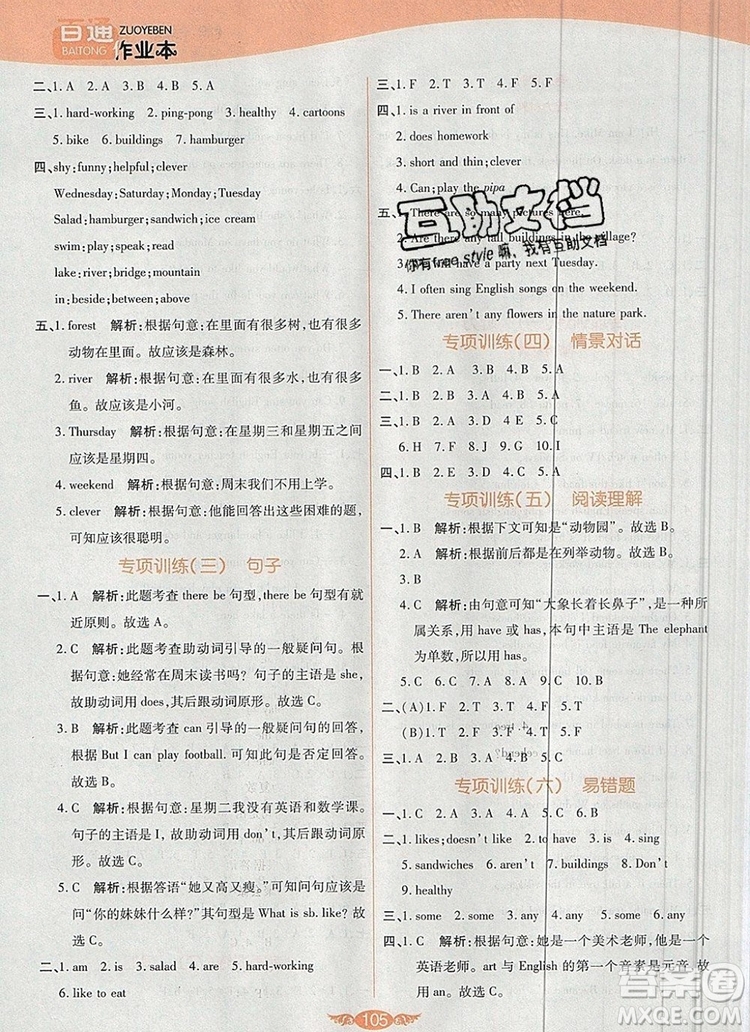 百通
BAITONG
ZUOYEBEN
作业本
二、1. A 2. A 3. A 4. B 5. A
三、1. hard-working 2. ping-pong 3. healthy 4. cartoons
5. bike 6. buildings 7. hamburger
四、shy;funny;helpful;clever
Wednesday;Saturday;Monday;Tuesday
Salad;hamburger;sandwich;ice cream
swim;play;speak;read
lake;river;bridge;mountain
in;between;above;behind
五、1. forest 解析:根据句意:在里面有很多树,也有很多
动物在里面。故应该是森林。
2. river 解析:根据句意:在里面有很多水,也有很多
鱼。故应该是小河。
3. Thursday 解析:根据句意:在星期三和星期五之间
应该是星期四。
4. weekend 解析:根据句意:周末我们不用上学。
5. clever 解析:根据句意:他能回答出这些困难的题,
可知应该是很聪明。
专项训练(三) 句子
一、1. A 解析:此题考查 there be 句型,there be 句型有
就近原则。故选 A。
2. C 解析:此题考查助动词引导的一般疑问句。根
据句意:她经常在周末读书吗? 句子的主语是 she,
故助动词用 does,助动词后用动词原形。故选 C。
3. B 解析:此题考查 can 引导的一般疑问句的回答,
根据回答:But I can play football. 可知应是否定回答。
故选 A。
4. C 解析:根据句意:星期二我没有英语和数学课。
句子的主语是 I,故助动词用 don't,其后跟动词原形。
故选 C。
5. C 解析:根据答语“她又高又瘦。”可知问句应该是
问“你的妹妹什么样?”其句型是 What is sb. like? 故
选 C。
二、1. am 2. is 3. salad 4. are 5. hard-working
6. like to eat
三、1. F 2. T 3. T 4. F 5. F
四、1. is a river in front of
2. does homework
3. short and thin;clever
4. Can;play the pipa
五、1. There are so many pictures here.
2. Are there any tall buildings in the village?
3. We will have a party next Tuesday.
4. I often sing English songs on the weekend.
5. There aren't any flowers in the nature park.
互助文档
你有free style嘛,我有互助文档
专项训练(四) 情景对话
一、1. B 2. A 3. A 4. B 5. A
二、1. C 2. A 3. D 4. E 5. B
三、1. D 2. B 3. C 4. A 5. E
6. H 7. F 8. J 9. G 10. I
四、1. B 2. E 3. A 4. C 5. D
专项训练(五) 阅读理解
一、1. B 解析:根据下文可知是“动物园”。故选 B。
2. A 解析:根据前后都是在列举动物。故选 B。
3. A
4. C 解析:由句意可知“大象长着长鼻子”,对于所
属关系,用 have 或 has,本句中主语是 The elephant
为单数,所以用 has。
5. C 6. C 7. A 8. A 9. C 10. B
二、(A)1. F 2. F 3. T 4. F 5. T
(B)1. F 2. T 3. F 4. T 5. T
三、1. B 2. A 3. C 4. A 5. C
专项训练(六) 易错题
一、1. C 2. A 3. A 4. A 5. C 6. B
二、1. likes;doesn't like 2. to have 3. is 4. sing
5. sandwiches 6. aren't 7. buildings 8. on
9. healthy
三、1. some 2. some 3. any 4. any 5. any
四、1. C 解析:根据句意:她是一个美术老师,他是一个
英语老师。art 与 English 的第一个音是元音,故
用 an。
105
答案圈
MXQE.COM